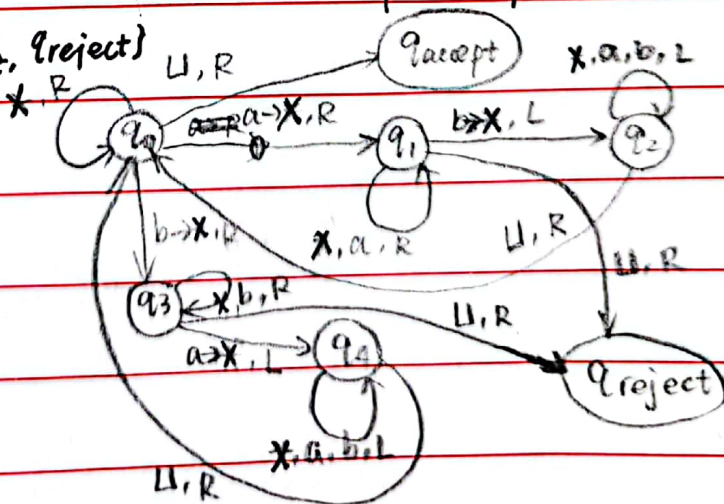 t, qreject}
⊔, R
qaccept
x, a, b, L
x, R
q0
a→x, R
q1
b→x, L
q2
b→x, R
x, a, R
⊔, R
⊔, R
q3
x, b, R
⊔, R
a→x, L
q4
qreject
x, a, b, L
⊔, R